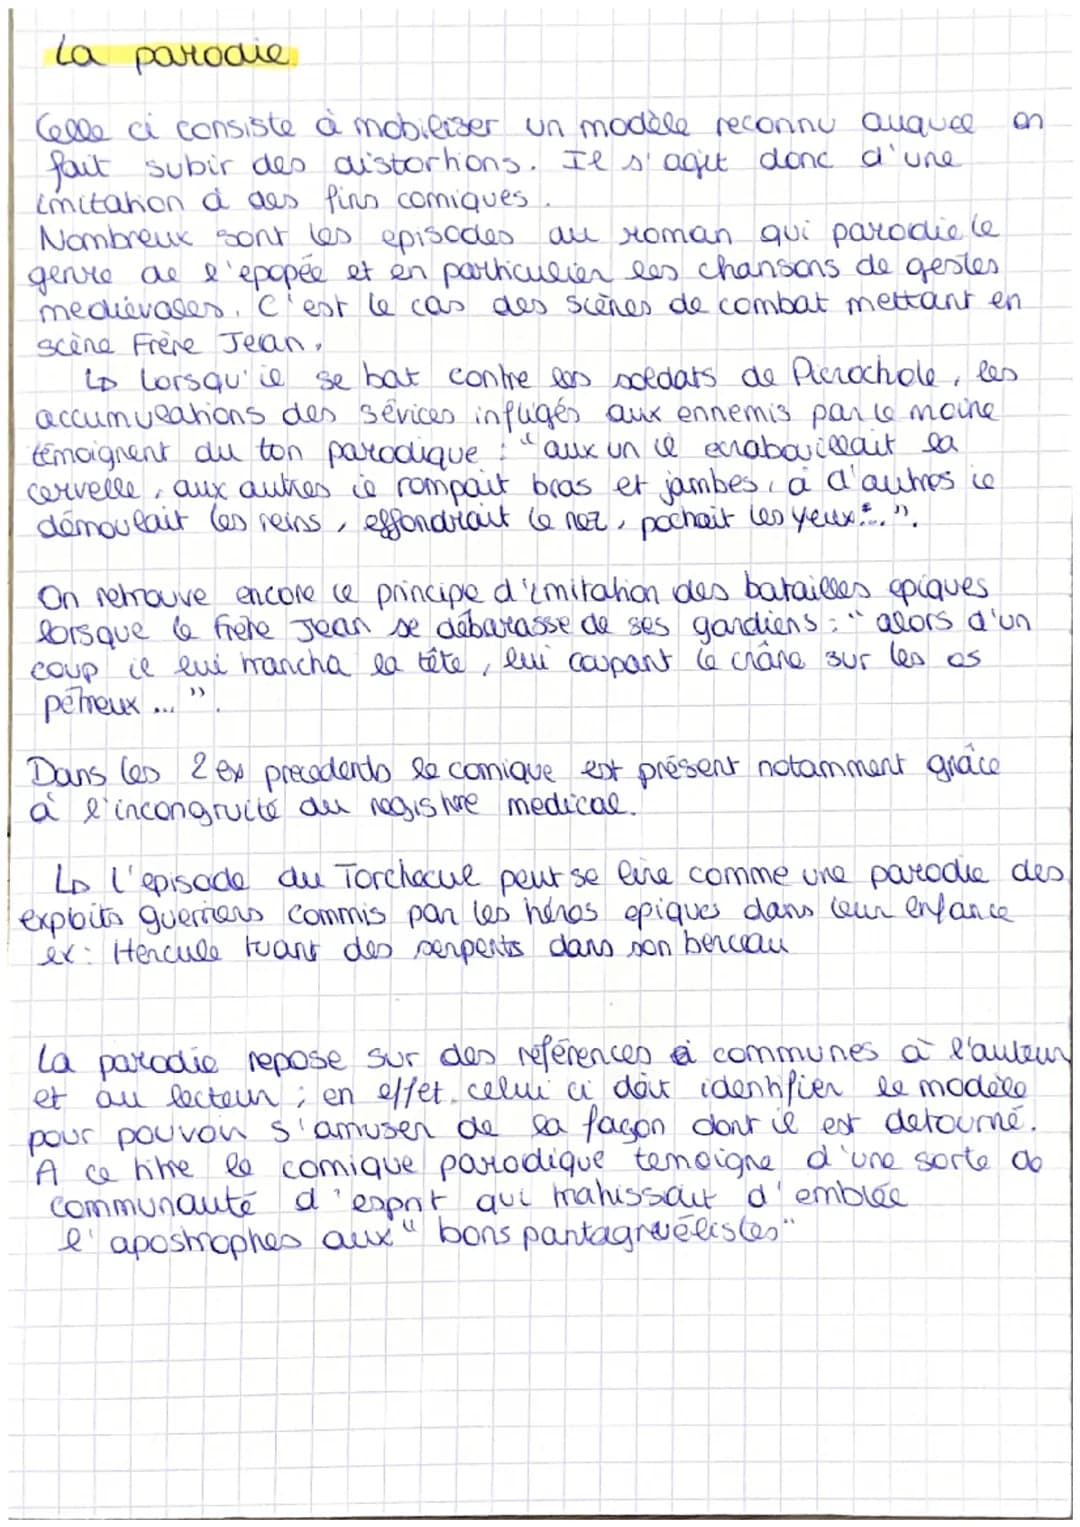 La parodie
Celle ci consiste à mobiliser un modèle reconnu auquel on
fait subir des distortions. Il s'agit donc d'une
imitation à des fins comiques.
Nombreux sont les episodes du roman qui parodie le
genre de l'epopée et en particulier les chansons de gestes
medievales. C'est le cas des scènes de combat mettant en
scène Frère Jean.
↳ Lorsqu'il se bat contre les soldats de Picrochole, les
accumulations des sévices infligés aux ennemis par le moine
témoignent du ton parodique : "aux un il ecrabouillait la
cervelle, aux autres il rompait bras et jambes, à d'autres il
démoulait les reins, effondrait le nez, pochait les yeux...".
On retrouve encore ce principe d'imitation des batailles epiques
lorsque le frère Jean se débarasse de ses gardiens : "alors d'un
coup il lui trancha la tête, lui coupant le crâne sur les os
pétreux ...".
Dans les 2 ex precedents le comique est présent notamment grâce
à l'incongruité du registre medical.
↳ L'episode du Torchecul peut se lire comme une parodie des
exploits guerriers commis par les héros epiques dans leur enfance
ex : Hercule tuant des serpents dans son berceau
La parodie repose sur des références communes à l'auteur
et au lecteur ; en effet celui ci doit identifier le modèle
pour pouvoir s'amuser de la façon dont il est detourné.
A ce titre le comique parodique temoigne d'une sorte de
communauté d'esprit qui trahissait d'emblée
l'apostrophes aux "bons pantagruélistes"